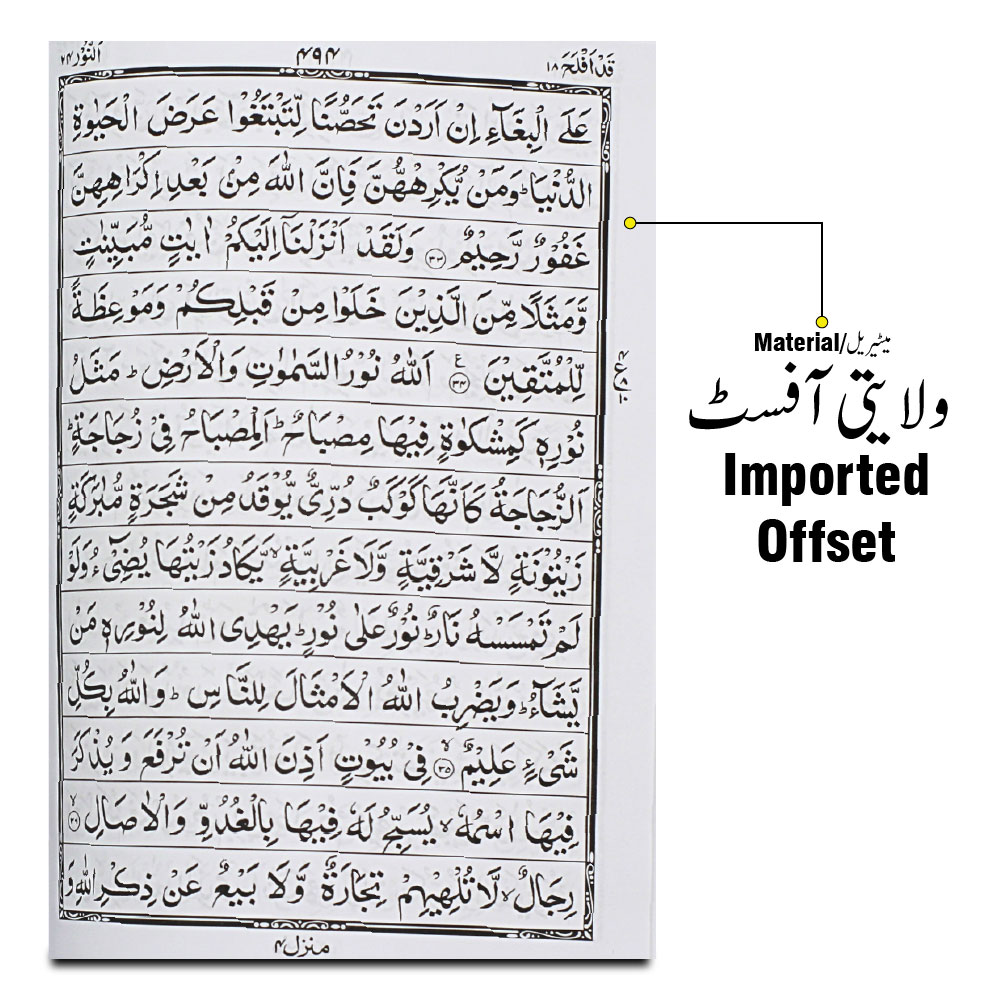 قَدْ اَفْلَحَ ١٨
٤٩٤
اَلنُّوْر ٢٤
عَلَى الْبِغَآءِ اِنْ اَرَدْنَ تَحَصُّنًا لِّتَبْتَغُوْا عَرَضَ الْحَيٰوةِ
الدُّنْيَا ؕ وَمَنْ يُّكْرِهْهُّنَّ فَاِنَّ اللّٰهَ مِنْۢ بَعْدِ اِكْرَاهِهِنَّ
غَفُوْرٌ رَّحِيْمٌ ﴿٣٣﴾ وَلَقَدْ اَنْزَلْنَاۤ اِلَيْكُمْ اٰيٰتٍ مُّبَيِّنٰتٍ
وَّمَثَلًا مِّنَ الَّذِيْنَ خَلَوْا مِنْ قَبْلِكُمْ وَمَوْعِظَةً
لِّلْمُتَّقِيْنَ ﴿٣٤﴾ ع اَللّٰهُ نُوْرُ السَّمٰوٰتِ وَالْاَرْضِ ؕ مَثَلُ
نُوْرِهٖ كَمِشْكٰوةٍ فِيْهَا مِصْبَاحٌ ؕ اَلْمِصْبَاحُ فِيْ زُجَاجَةٍ ؕ
اَلزُّجَاجَةُ كَاَنَّهَا كَوْكَبٌ دُرِّيٌّ يُّوْقَدُ مِنْ شَجَرَةٍ مُّبٰرَكَةٍ
زَيْتُوْنَةٍ لَّا شَرْقِيَّةٍ وَّلَا غَرْبِيَّةٍ ۙ يَّكَادُ زَيْتُهَا يُضِيْٓءُ وَلَوْ
لَمْ تَمْسَسْهُ نَارٌ ؕ نُوْرٌ عَلٰى نُوْرٍ ؕ يَهْدِى اللّٰهُ لِنُوْرِهٖ مَنْ
يَّشَآءُ ؕ وَيَضْرِبُ اللّٰهُ الْاَمْثَالَ لِلنَّاسِ ؕ وَاللّٰهُ بِكُلِّ
شَىْءٍ عَلِيْمٌ ۙ﴿٣٥﴾ فِيْ بُيُوْتٍ اَذِنَ اللّٰهُ اَنْ تُرْفَعَ وَيُذْكَرَ
فِيْهَا اسْمُهٗ ۙ يُسَبِّحُ لَهٗ فِيْهَا بِالْغُدُوِّ وَالْاٰصَالِ ۙ﴿٣٦﴾
رِجَالٌ ۙ لَّا تُلْهِيْهِمْ تِجَارَةٌ وَّلَا بَيْعٌ عَنْ ذِكْرِ اللّٰهِ وَ
منزل ٤
میٹیریل/Material
ولایتی آفسٹ
Imported
Offset